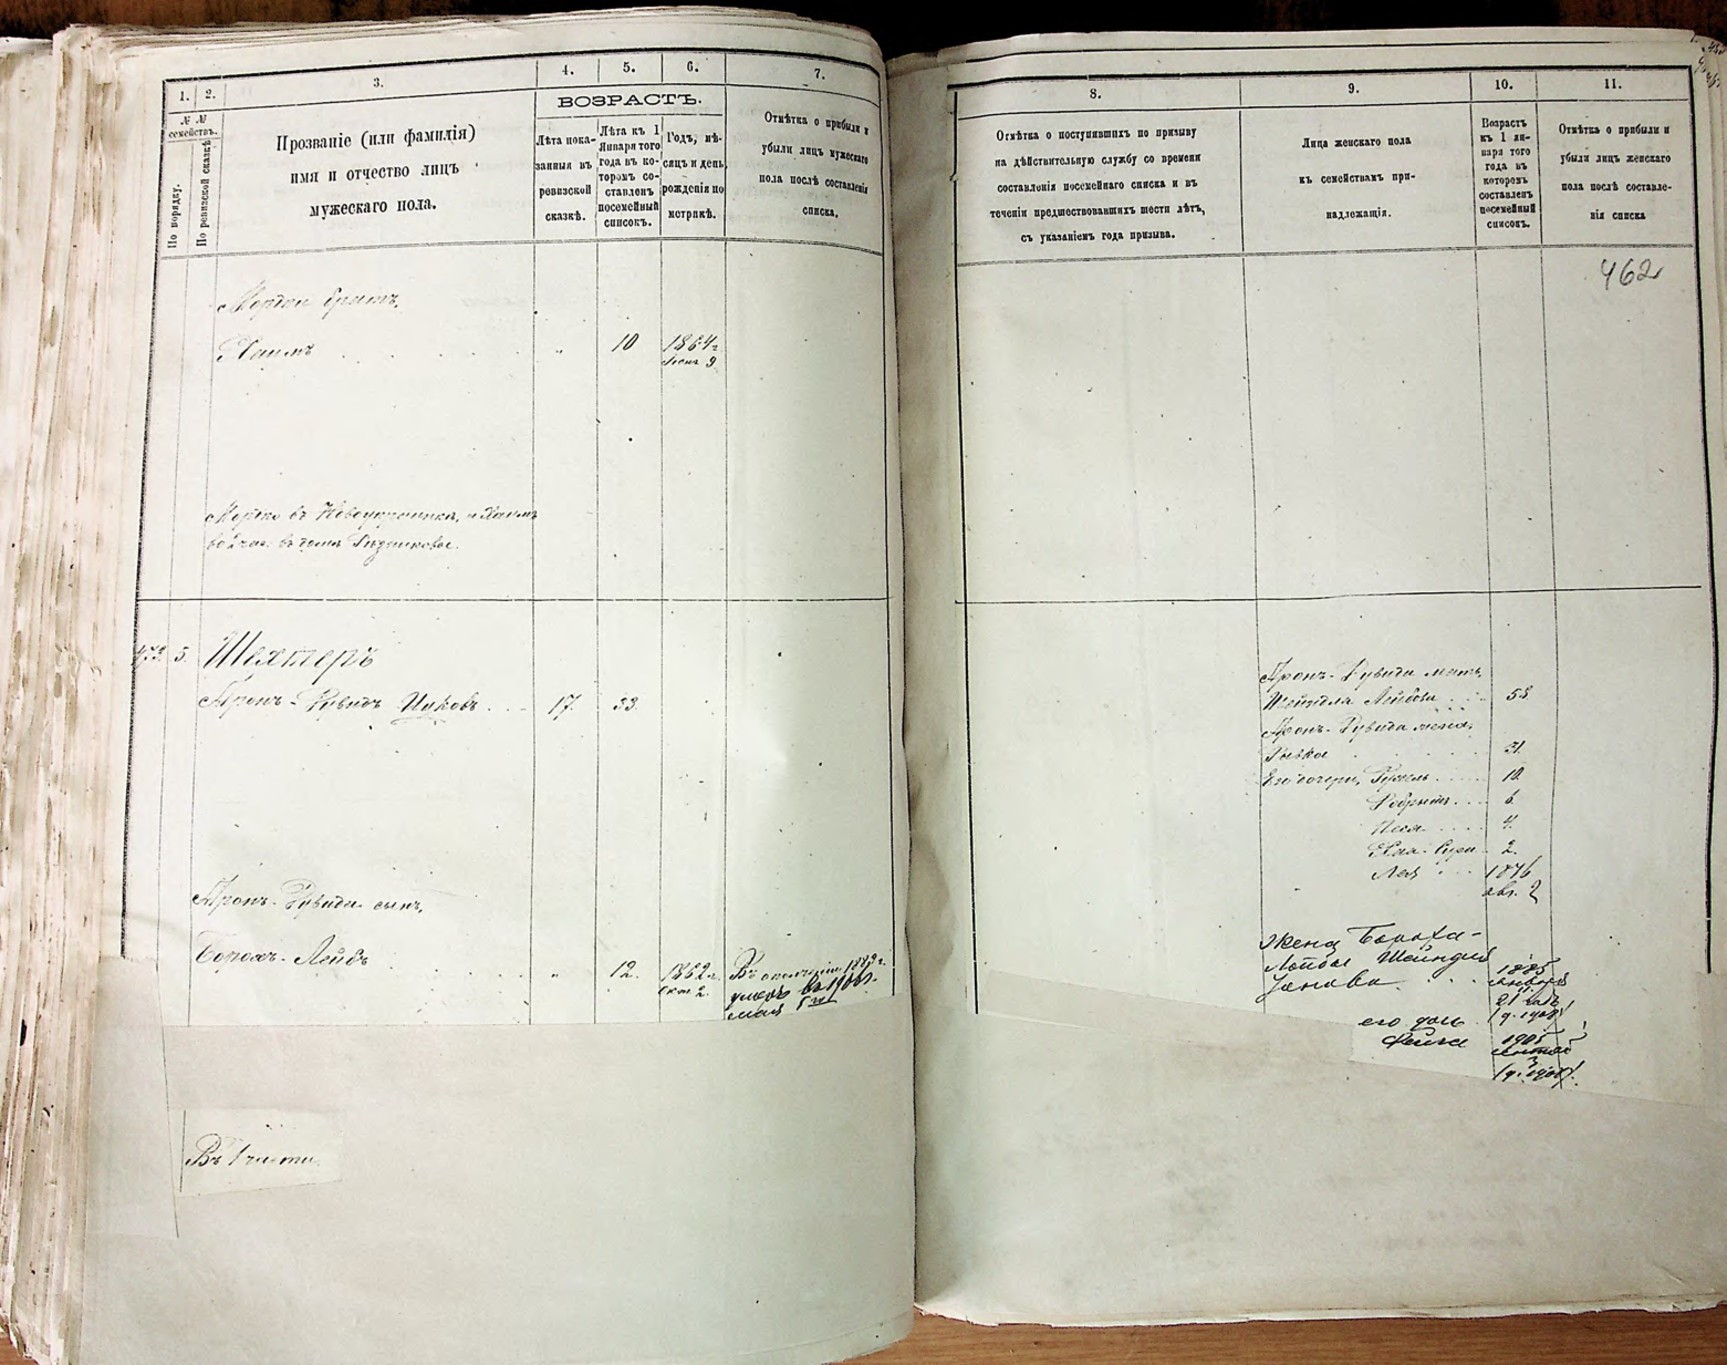 1.
2.
3.
4.
5.
6.
7.
№ №
семействъ.
По порядку.
По ревизской сказкѣ
Прозваніе (или фамилія)
имя и отчество лицъ
мужескаго пола.
ВОЗРАСТЪ.
Лѣта пока-
занныя въ
ревизской
сказкѣ.
Лѣта къ 1
Января того
года въ ко-
торомъ со-
ставленъ
посемейный
списокъ.
Годъ, мѣ-
сяцъ и день
рожденія по
метрикѣ.
Отмѣтка о прибыли и
убыли лицъ мужескаго
пола послѣ составленія
списка.
братъ,
Хаимъ 10 1864 г.
9
въ и Хаимъ
во 2 час. въ домѣ
473. 5. Шехтеръ
Аронъ-Рувидъ Ицковъ 17. 33.
Аронъ-Рувида сынъ,
Борохъ-Лейбъ „ 12. 1862 г. Въ ополченіи 1883 г.
Окт. 2. умеръ въ 1906 г.
мая
Въ 1 части
8.
9.
10.
11.
Отмѣтка о поступившихъ по призыву
на дѣйствительную службу со времени
составленія посемейнаго списка и въ
теченіи предшествовавшихъ шести лѣтъ,
съ указаніемъ года призыва.
Лица женскаго пола
къ семействамъ при-
надлежащія.
Возрастъ
къ 1 ян-
варя того
года въ
которомъ
составленъ
посемейный
списокъ.
Отмѣтка о прибыли и
убыли лицъ женскаго
пола послѣ составле-
нія списка
462
Аронъ-Рувида мать,
Шейндля Лейбова 58
Аронъ-Рувида жена,
Рывка 31.
Его дочери, 10
6
Песя 4.
Хая-Сура 2.
Лея 1876
авг. 2
Жена Бороха-
Лейбы Шейндля 1885
21
его дочь
Фейга 1905
3